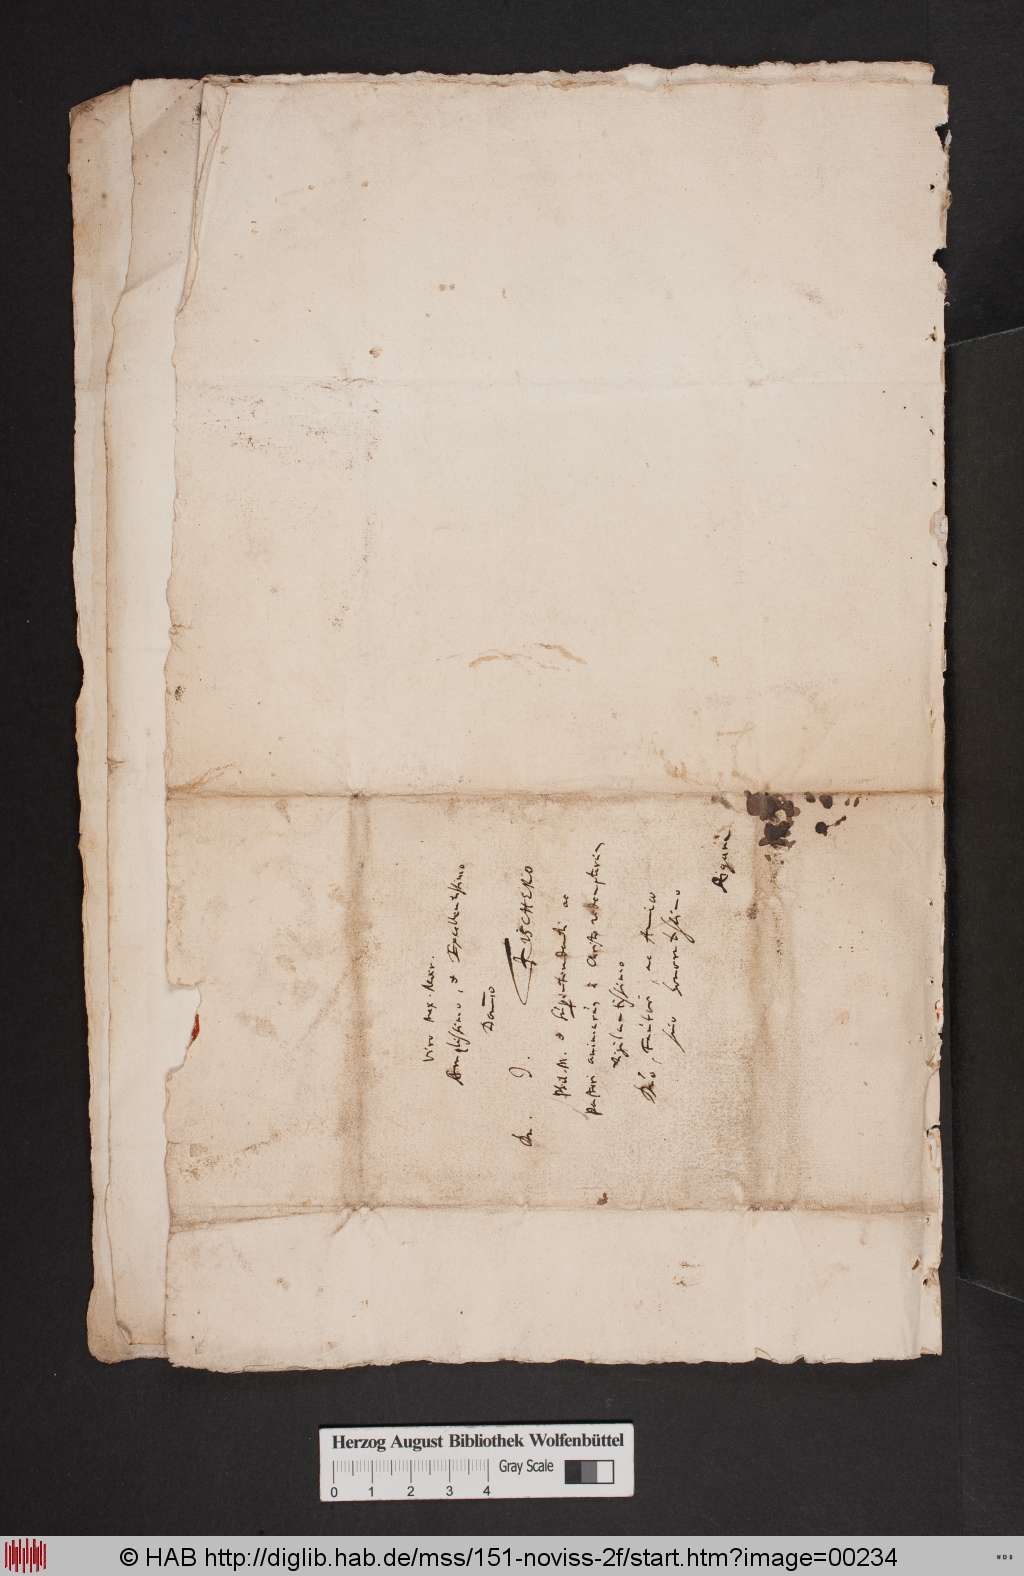 Viro Max. Rever.
Amplissimo, & Excellentissimo
Domino
Dn. J. FISCHERO
Phil. M. & Superintendenti ac
pastori animarum à Christo redemptarum
vigilantissimo
Dno, Fautori, ac Amico
suo honoratissimo
Rigam
Herzog August Bibliothek Wolfenbüttel
Gray Scale
0 1 2 3 4
© HAB http://diglib.hab.de/mss/151-noviss-2f/start.htm?image=00234